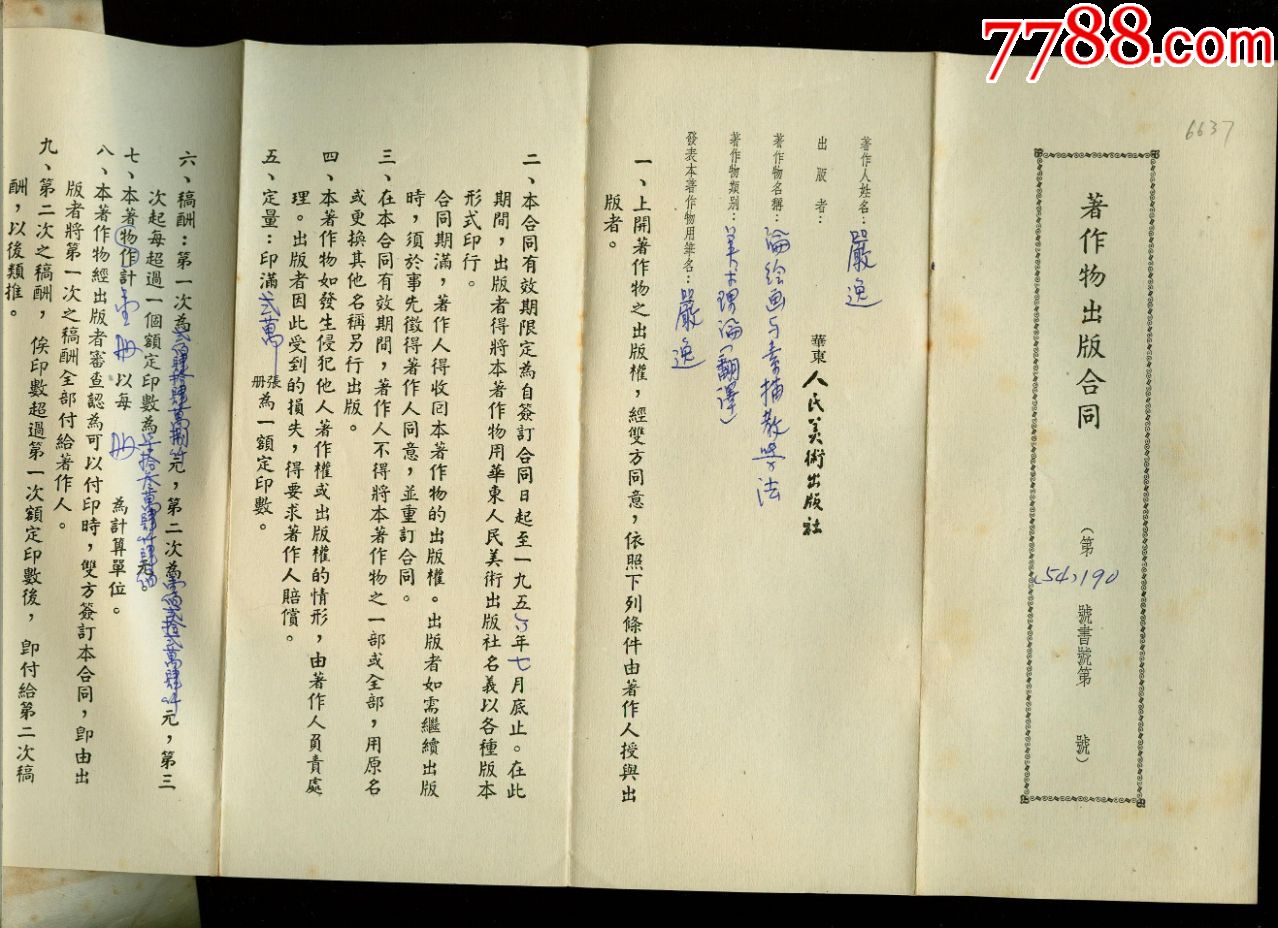 7788.com
6637
著作物出版合同
(第(54)190號書號第 號)
著作人姓名：嚴逸
出版者：華東人民美術出版社
著作物名稱：論绘画与素描教学法
著作物類别：美术理論(翻譯)
發表本著作物用筆名：嚴逸
一、上開著作物之出版權，經雙方同意，依照下列條件由著作人授與出
版者。
二、本合同有效期限定為自簽訂合同日起至一九五六年七月底止。在此
期間，出版者得將本著作物用華東人民美術出版社名義以各種版本
形式印行。
合同期滿，著作人得收回本著作物的出版權。出版者如需繼續出版
時，須於事先徵得著作人同意，並重訂合同。
三、在本合同有效期間，著作人不得將本著作物之一部或全部，用原名
或更換其他名稱另行出版。
四、本著作物如發生侵犯他人著作權或出版權的情形，由著作人負責處
理。出版者因此受到的損失，得要求著作人賠償。
五、定量：印滿弍萬張冊為一額定印數。
六、稿酬：第一次為元，第二次為元，第三
次起每超過一個額定印數為元。
七、本著物作計壹册以每册為計算單位。
八、本著作物經出版者審查認為可以付印時，雙方簽訂本合同，即由出
版者將第一次之稿酬全部付給著作人。
九、第二次之稿酬，俟印數超過第一次額定印數後，即付給第二次稿
酬，以後類推。